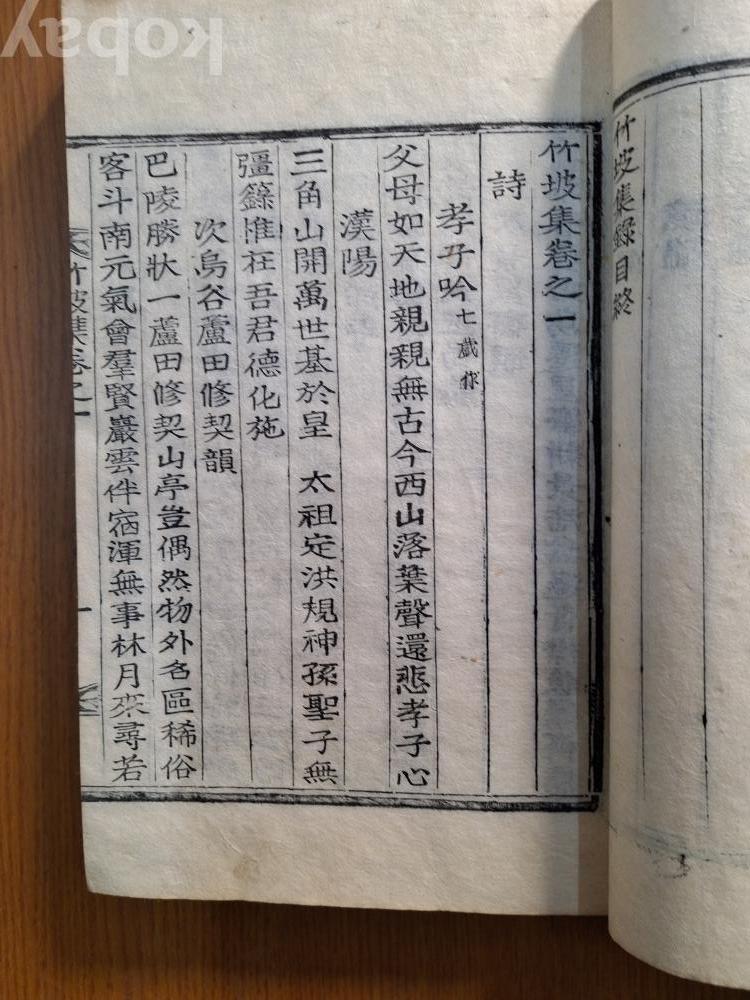 竹坡集錄目終
竹坡集卷之一
詩
孝子吟七歲作
父母如天地親親無古今西山落葉聲還悲孝子心
漢陽
三角山開萬世基於皇 太祖定洪規神孫聖子無
彊籙惟在吾君德化施
次鳥谷蘆田修契韻
巴陵勝狀一蘆田修契山亭豈偶然物外名區稀俗
客斗南元氣會羣賢巖雲伴宿渾無事林月來尋若
竹坡集卷之一
一
kobay